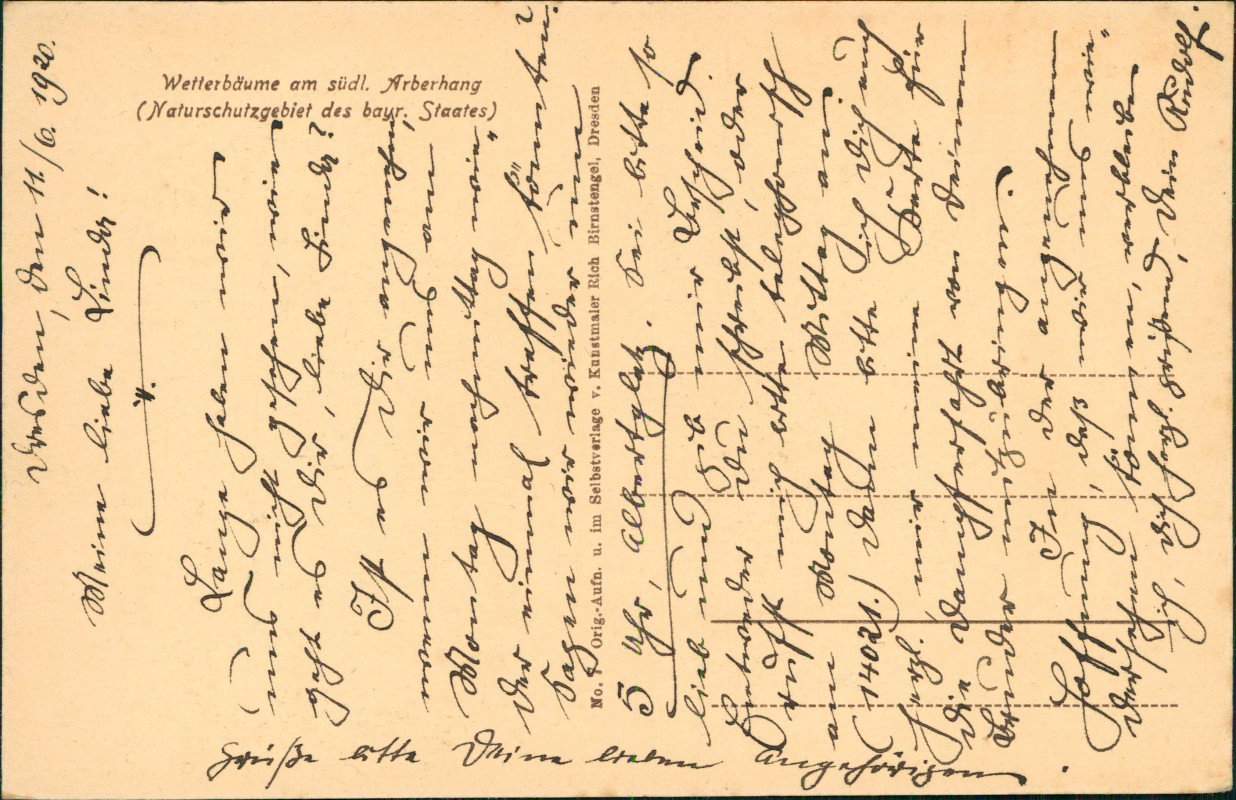 Wetterbäume am südl. Arberhang
(Naturschutzgebiet des bayr. Staates)
No. Orig.-Aufn. u. im Selbstverlage v. Kunstmaler Rich Birnstengel, Dresden
Dresden, den 11/6. 1920.
Meine liebe Lindy!
Lange haben wir
uns nicht gesehen, wie
geht es Dir, liebe Lindy?
Ist es Dir angenehm,
wenn wir uns
Montag nachmittag wie-
der einmal treffen könnten?
Sagen wir wieder um
5 Uhr, Albertplatz. Sei bitte so
lieb und gib mir Bescheid.
Entweder Du schreibst, oder
rufst mich bitte telephonisch
am Montag Mittag an.
(14021.) Dann bitte ich Dich auch
herzl. mir meine Karte für
die Dampferfahrt von Deinem
Bruder mitzubringen.
In der angenehmen
Hoffnung, daß wir uns wie-
dersehen können, verbleibe
ich, Dich herzl. grüßend, Dein Rudolf.
Grüße bitte Deine lieben Angehörigen.